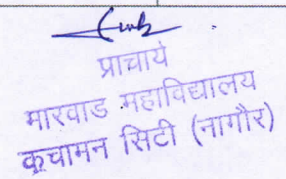 प्राचार्य
मारवाड महाविद्यालय
कूचामन सिटी (नागौर)